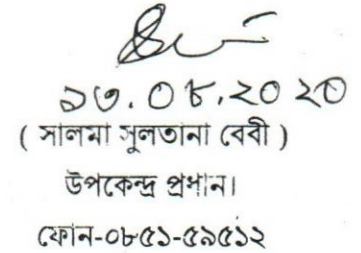 ১৩.০৮.২০২০
( সালমা সুলতানা বেবী )
উপকেন্দ্র প্রধান।
ফোন-০৮৫১-৫৯৫১২